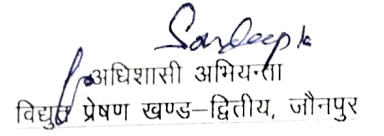 Sandeep k
अधिशासी अभियन्ता
विद्युत प्रेषण खण्ड–द्वितीय, जौनपुर